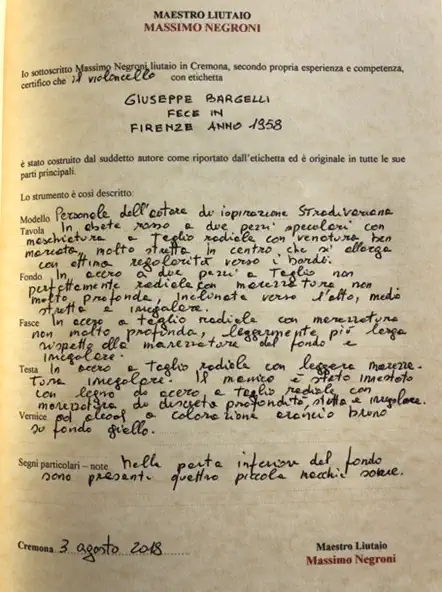 MAESTRO LIUTAIO
MASSIMO NEGRONI
Io sottoscritto Massimo Negroni liutaio in Cremona, secondo propria esperienza e competenza,
certifico che il violoncello con etichetta
GIUSEPPE BARGELLI
FECE IN
FIRENZE ANNO 1958
è stato costruito dal suddetto autore come riportato dall'etichetta ed è originale in tutte le sue
parti principali.
Lo strumento è così descritto:
Modello Personale dell'autore di ispirazione Stradivariana
Tavola In abete rosso a due pezzi speculari con
maschiatura a Taglio radiale con venatura ben
marcata, molto stretta in centro che si allarga
con ottima regolarità verso i bordi.
Fondo In acero a due pezzi a Taglio non
perfettamente radiale con marezzatura non
molto profonda, inclinata verso l'alto, media
stretta e irregolare.
Fasce In acero a taglio radiale con marezzatura
non molto profonda, leggermente più larga
rispetto alla marezzatura del fondo e
irregolare.
Testa In acero a Taglio radiale con leggera marezza-
tura irregolare. Il manico è stato innestato
con legno di acero a Taglio radiale con
di discreta profondità stretta e irregolare.
Vernice ad alcool a colorazione arancio bruno
su fondo giallo.
Segni particolari – note Nella parte inferiore del fondo
sono presenti quattro piccole macchie scure.
Cremona 3 agosto 2018
Maestro Liutaio
Massimo Negroni